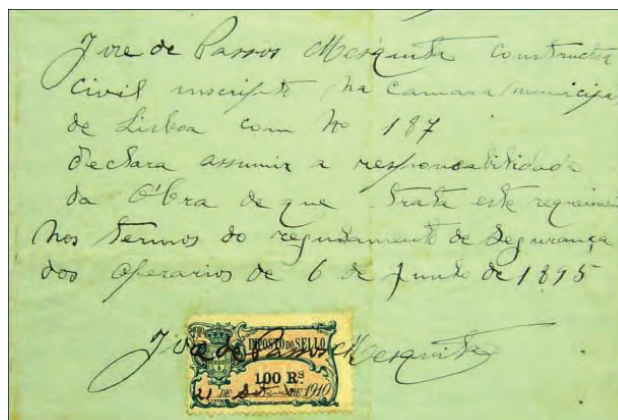 José de Passos Mesquita constructor
civil inscripto na camara municipal
de Lisboa com No 187
declara assumir a responcabilidade
da Obra de que trata este requeimen
nos termos do regulamento de Segurança
dos operarios de 6 de Junho de 1895
José de Passos Mesquita
IMPOSTO DO SELLO
100 Rs
DE 1910